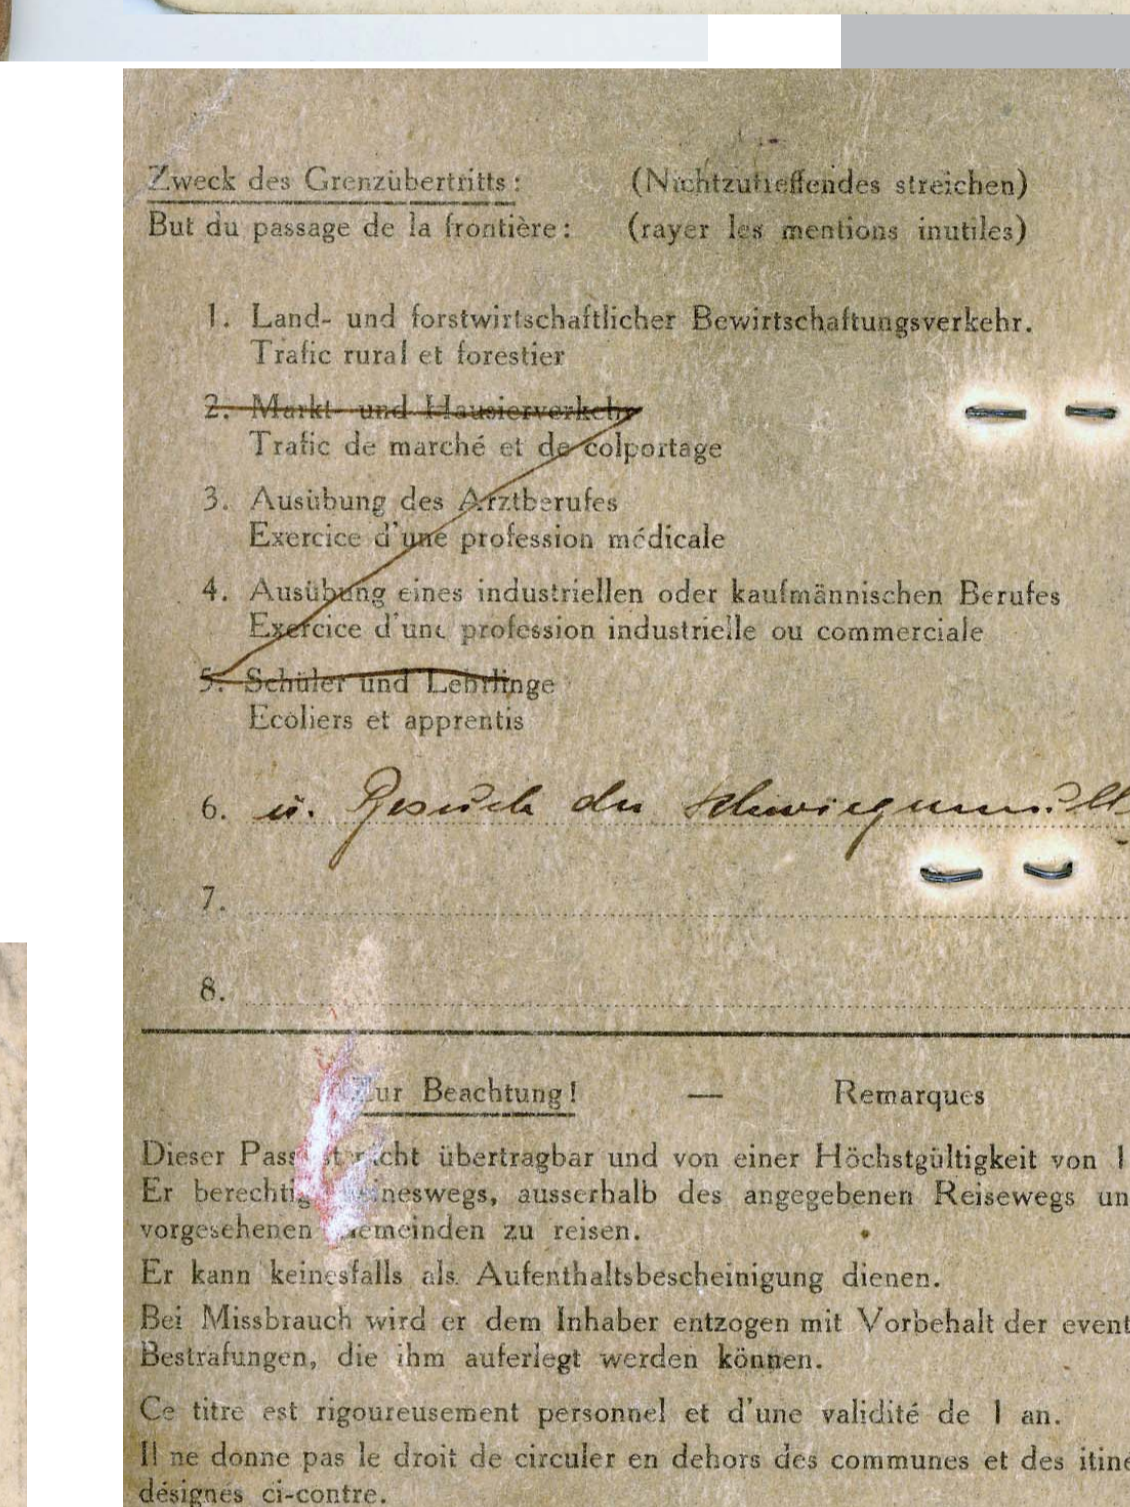 Zweck des Grenzübertritts: (Nichtzutreffendes streichen)
But du passage de la frontière: (rayer les mentions inutiles)
1. Land- und forstwirtschaftlicher Bewirtschaftungsverkehr.
Trafic rural et forestier
2. Markt- und Hausierverkehr
Trafic de marché et de colportage
3. Ausübung des Arztberufes
Exercice d'une profession médicale
4. Ausübung eines industriellen oder kaufmännischen Berufes
Exercice d'une profession industrielle ou commerciale
5. Schüler und Lehrlinge
Ecoliers et apprentis
6. u. Besuch der
7.
8.
Zur Beachtung! — Remarques
Dieser Pass ist nicht übertragbar und von einer Höchstgültigkeit von 1
Er berechtigt keineswegs, ausserhalb des angegebenen Reisewegs un
vorgesehenen Gemeinden zu reisen.
Er kann keinesfalls als Aufenthaltsbescheinigung dienen.
Bei Missbrauch wird er dem Inhaber entzogen mit Vorbehalt der event
Bestrafungen, die ihm auferlegt werden können.
Ce titre est rigoureusement personnel et d'une validité de 1 an.
Il ne donne pas le droit de circuler en dehors des communes et des itiné
désignés ci-contre.